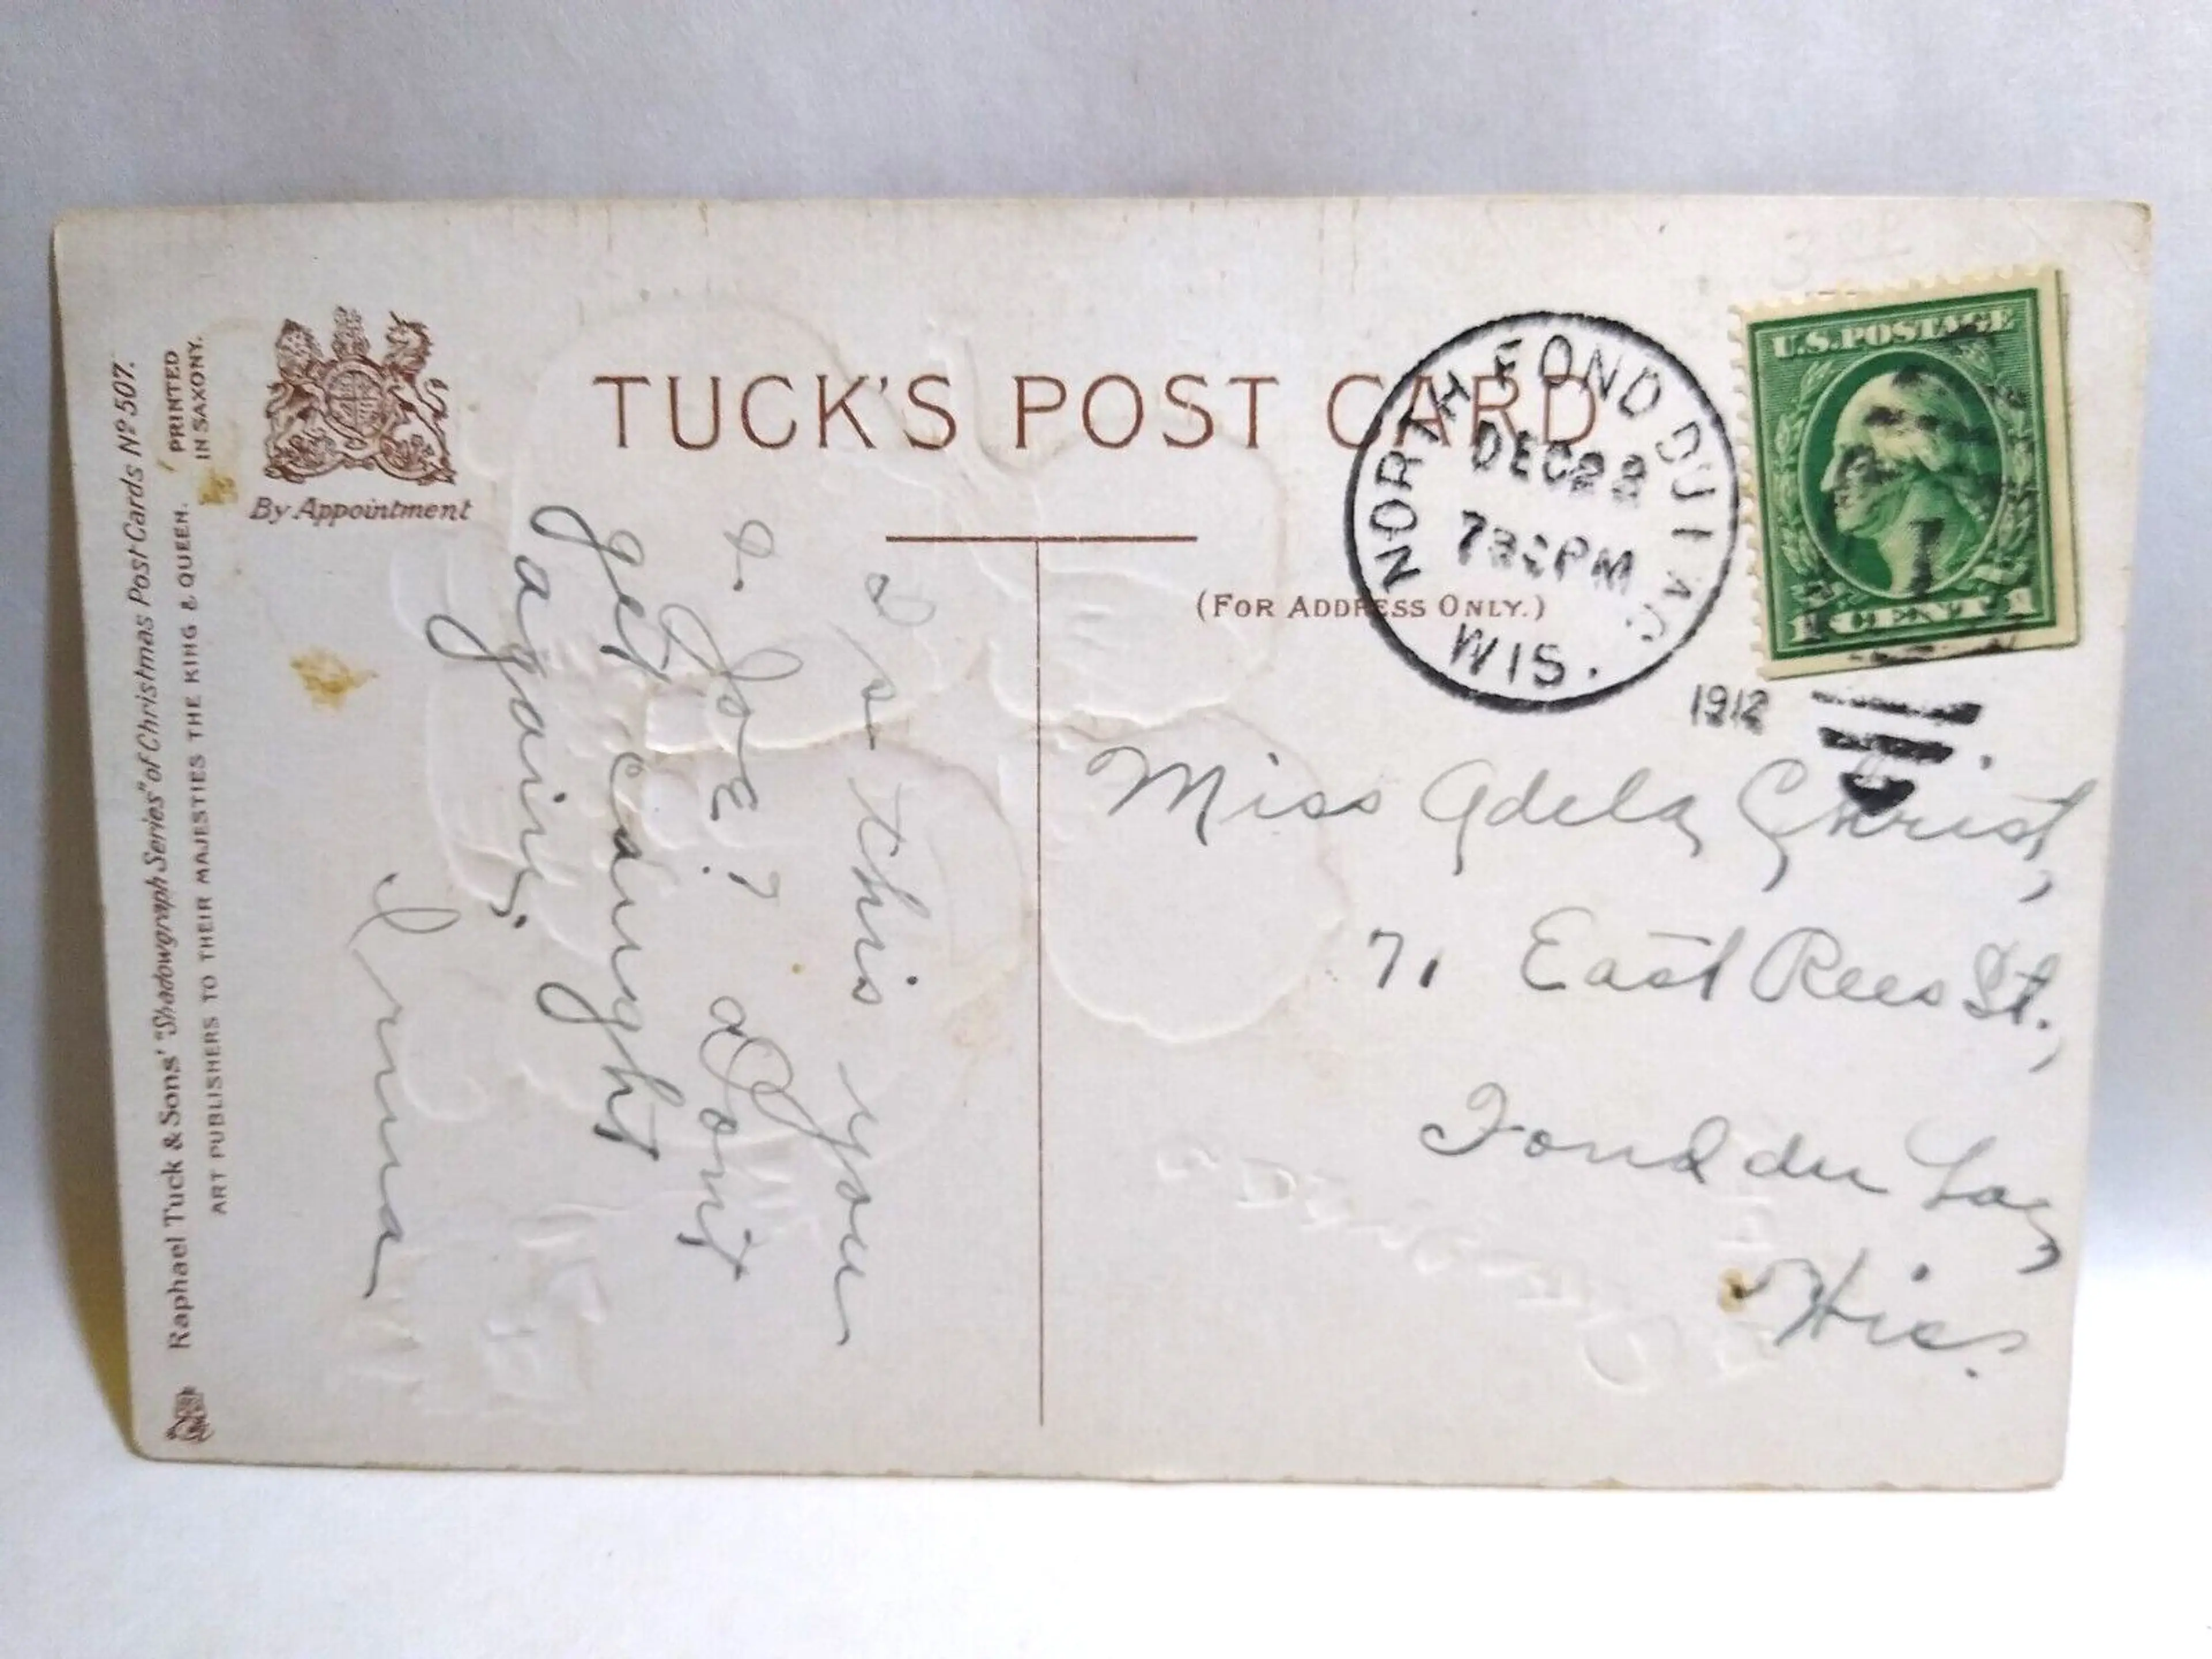 TUCK'S POST CARD
By Appointment
(FOR ADDRESS ONLY.)
Raphael Tuck & Sons' "Shadowgraph Series" of Christmas Post Cards Nº 507.
ART PUBLISHERS TO THEIR MAJESTIES THE KING & QUEEN.
PRINTED
IN SAXONY.
NORTH FOND DU LAC
DEC
PM
WIS.
1912
U.S. POSTAGE
1 CENT 1
Is this you
& Joe? Don't
get caught
again.
Irma
Miss Adela Christ,
71 East Rees St.,
Fond du Lac,
Wis.